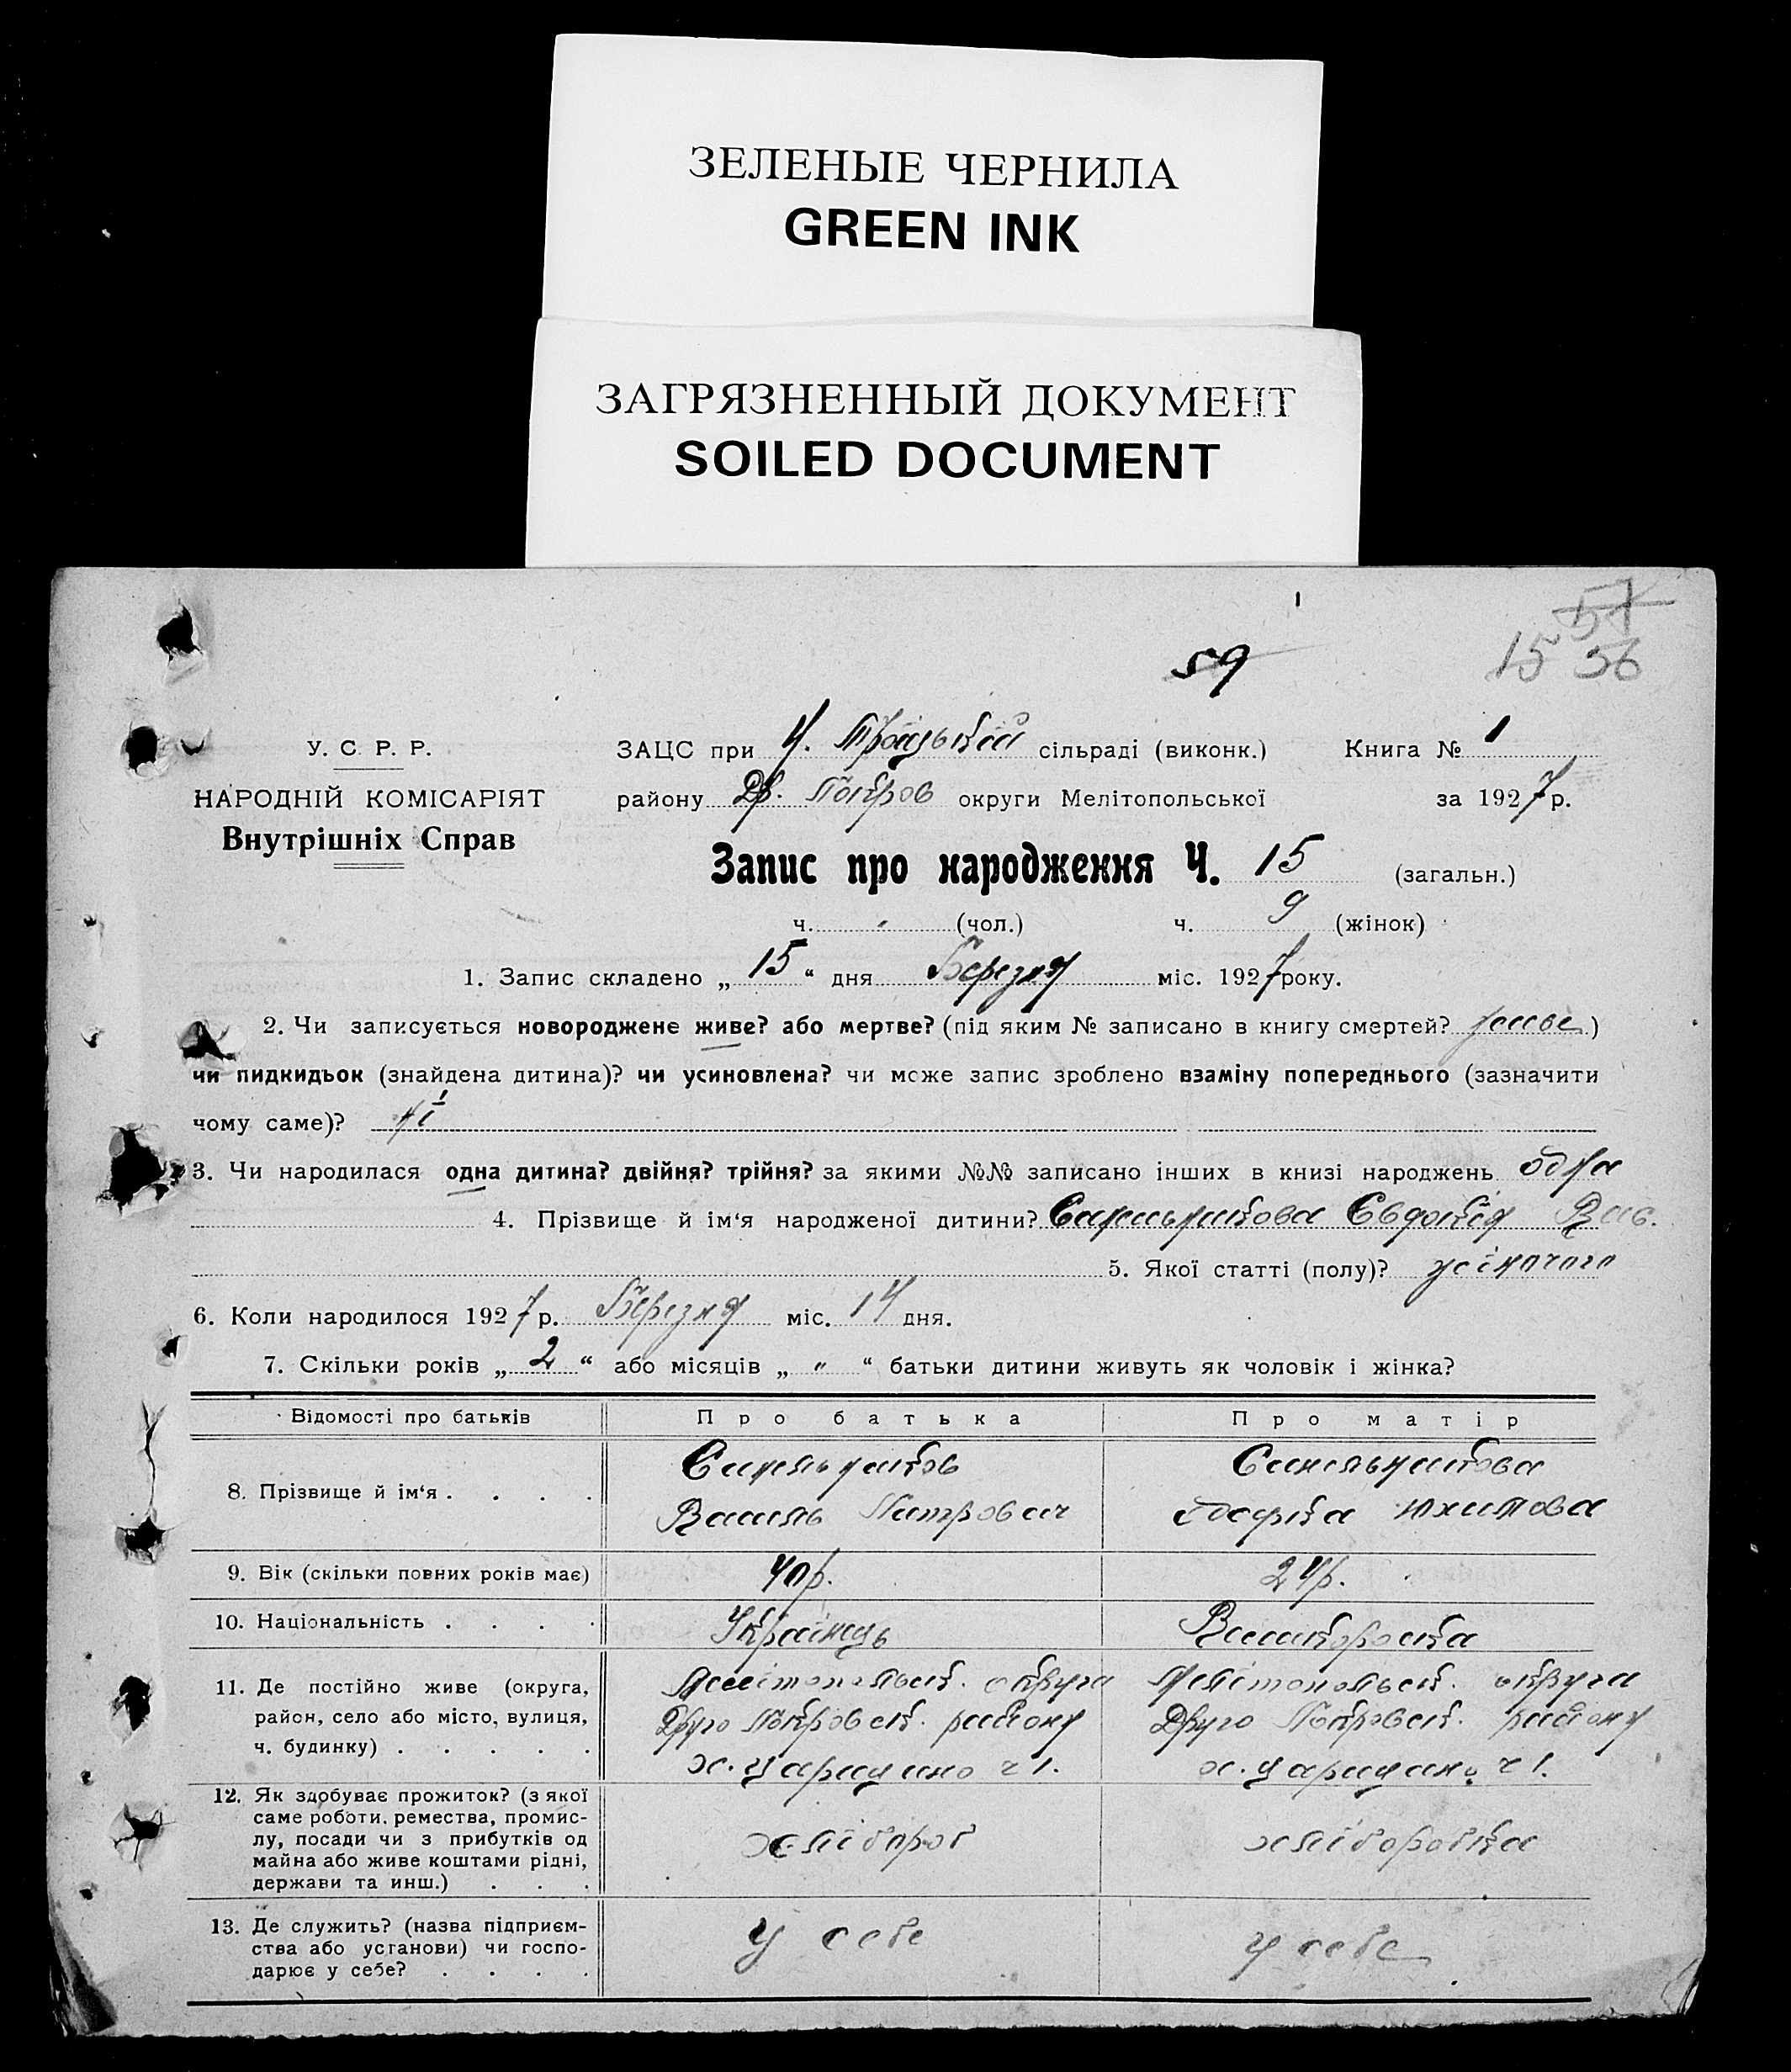 ЗЕЛЕНЫЕ ЧЕРНИЛА
GREEN INK
ЗАГРЯЗНЕННЫЙ ДОКУМЕНТ
SOILED DOCUMENT
57
59
15 56
У. С. Р. Р.
ЗАЦС при Н. Троїцькій сільраді (виконк.) Книга № 1
НАРОДНІЙ КОМІСАРІЯТ
району Др. Покров округи Мелітопольської за 1927 р.
Внутрішніх Справ
Запис про народження Ч. 15 (загальн.)
ч. (чол.) ч. 9 (жінок)
1. Запис складено „ 15 “ дня Березня міс. 1927 року.
2. Чи записується новороджене живе? або мертве? (під яким № записано в книгу смертей? живе)
чи пидкидьок (знайдена дитина)? чи усиновлена? чи може запис зроблено взаміну попереднього (зазначити
чому саме)? ні
3. Чи народилася одна дитина? двійня? трійня? за якими №№ записано інших в книзі народжень одна
4. Прізвище й ім‘я народженої дитини? Синельникова Євдокія Вас.
5. Якої статті (полу)? жіночого
6. Коли народилося 1927 р. Березня міс. 14 дня.
7. Скільки років „ 2 “ або місяців „ “ батьки дитини живуть як чоловік і жінка?
Відомості про батьків Про батька Про матір
8. Прізвище й ім‘я . . . .
Синельников
Василь Питрович
Синельникова
Юхимова
9. Вік (скільки повних років має) 40 р. 24 р.
10. Національність . . . . Українець Великороска
11. Де постійно живе (округа,
район, село або місто, вулиця,
ч. будинку) . . . . .
Мелітопольськ. округа
Друго Покровськ. району
х. Царицино ч 1.
Мелітопольськ. округа
Друго Покровськ. району
х. Царицино ч 1.
12. Як здобуває прожиток? (з якої
саме роботи, ремества, промис-
лу, посади чи з прибутків од
майна або живе коштами рідні,
держави та инш.) . . .
хлібороб
хліборобка
13. Де служить? (назва підприєм-
ства або установи) чи госпо-
дарює у себе? . . . .
У себе
у себе